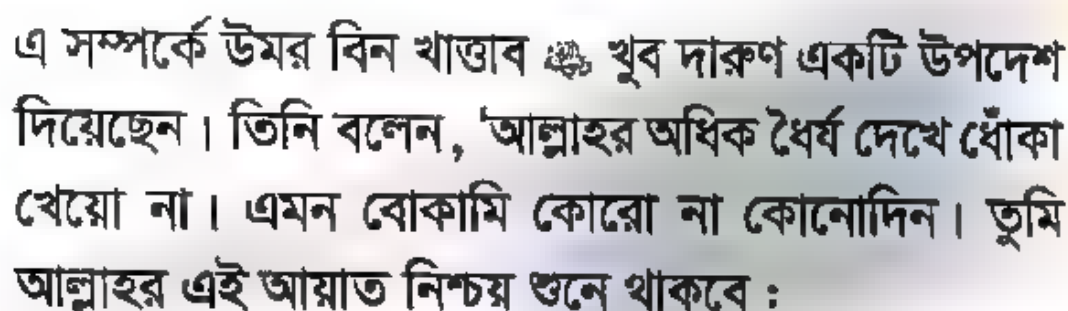 এ সম্পর্কে উমর বিন খাত্তাব ﷺ খুব দারুণ একটি উপদেশ
দিয়েছেন। তিনি বলেন, 'আল্লাহর অধিক ধৈর্য দেখে ধোঁকা
খেয়ো না। এমন বোকামি কোরো না কোনোদিন। তুমি
আল্লাহর এই আয়াত নিশ্চয় শুনে থাকবে :